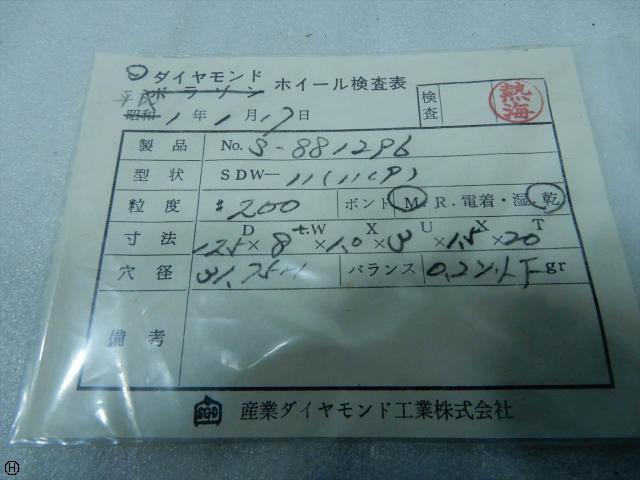 ダイヤモンド
ボラゾン ホイール検査表
平成
昭和 1年1月17日
検査 熱海
製品 No. S-881296
型状 SDW-11(11(9)
粒度 #200 ボンド M.R.電着・湿 乾
寸法 D W X U X T
125×8×1.0×3×1.5×20
穴径 31.75 バランス 0.2以下gr
備考
SGD 産業ダイヤモンド工業株式会社
H